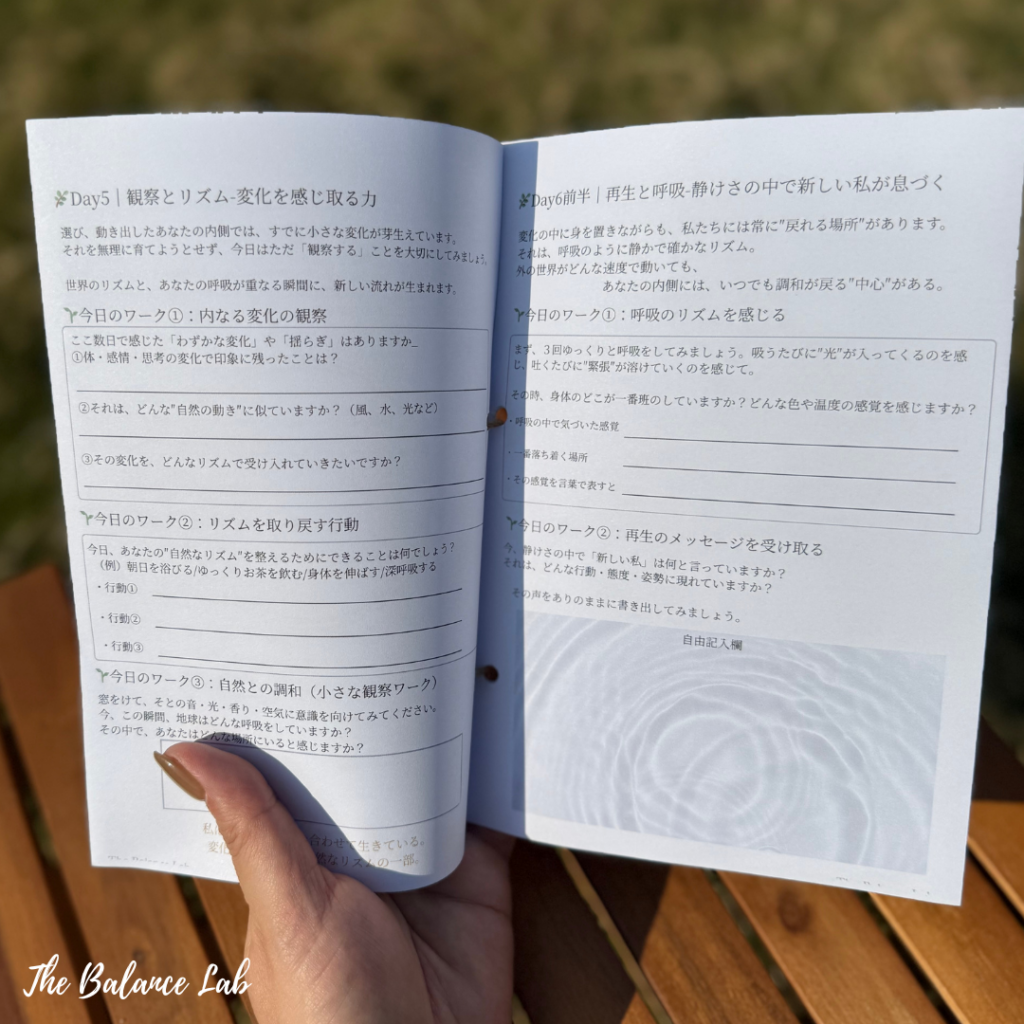 Day5｜観察とリズム-変化を感じ取る力
選び、動き出したあなたの内側では、すでに小さな変化が芽生えています。
それを無理に育てようとせず、今日はただ「観察する」ことを大切にしてみましょう。
世界のリズムと、あなたの呼吸が重なる瞬間に、新しい流れが生まれます。
今日のワーク①：内なる変化の観察
ここ数日で感じた「わずかな変化」や「揺らぎ」はありますか_
①体・感情・思考の変化で印象に残ったことは？
②それは、どんな"自然の動き"に似ていますか？（風、水、光など）
③その変化を、どんなリズムで受け入れていきたいですか？
今日のワーク②：リズムを取り戻す行動
今日、あなたの"自然なリズム"を整えるためにできることは何でしょう？
（例）朝日を浴びる/ゆっくりお茶を飲む/身体を伸ばす/深呼吸する
・行動①
・行動②
・行動③
今日のワーク③：自然との調和（小さな観察ワーク）
窓をけて、そとの音・光・香り・空気に意識を向けてみてください。
今、この瞬間、地球はどんな呼吸をしていますか？
その中で、あなたはどんな場所にいると感じますか？
私 合わせて生きている。
変化 なリズムの一部。
The Balance Lab
Day6前半｜再生と呼吸-静けさの中で新しい私が息づく
変化の中に身を置きながらも、私たちには常に"戻れる場所"があります。
それは、呼吸のように静かで確かなリズム。
外の世界がどんな速度で動いても、
あなたの内側には、いつでも調和が戻る"中心"がある。
今日のワーク①：呼吸のリズムを感じる
まず、３回ゆっくりと呼吸をしてみましょう。吸うたびに"光"が入ってくるのを感
じ、吐くたびに"緊張"が溶けていくのを感じて。
その時、身体のどこが一番班のしていますか？どんな色や温度の感覚を感じますか？
・呼吸の中で気づいた感覚
・一番落ち着く場所
・その感覚を言葉で表すと
今日のワーク②：再生のメッセージを受け取る
今、静けさの中で「新しい私」は何と言っていますか？
それは、どんな行動・態度・姿勢に現れていますか？
その声をありのままに書き出してみましょう。
自由記入欄
The Balance Lab